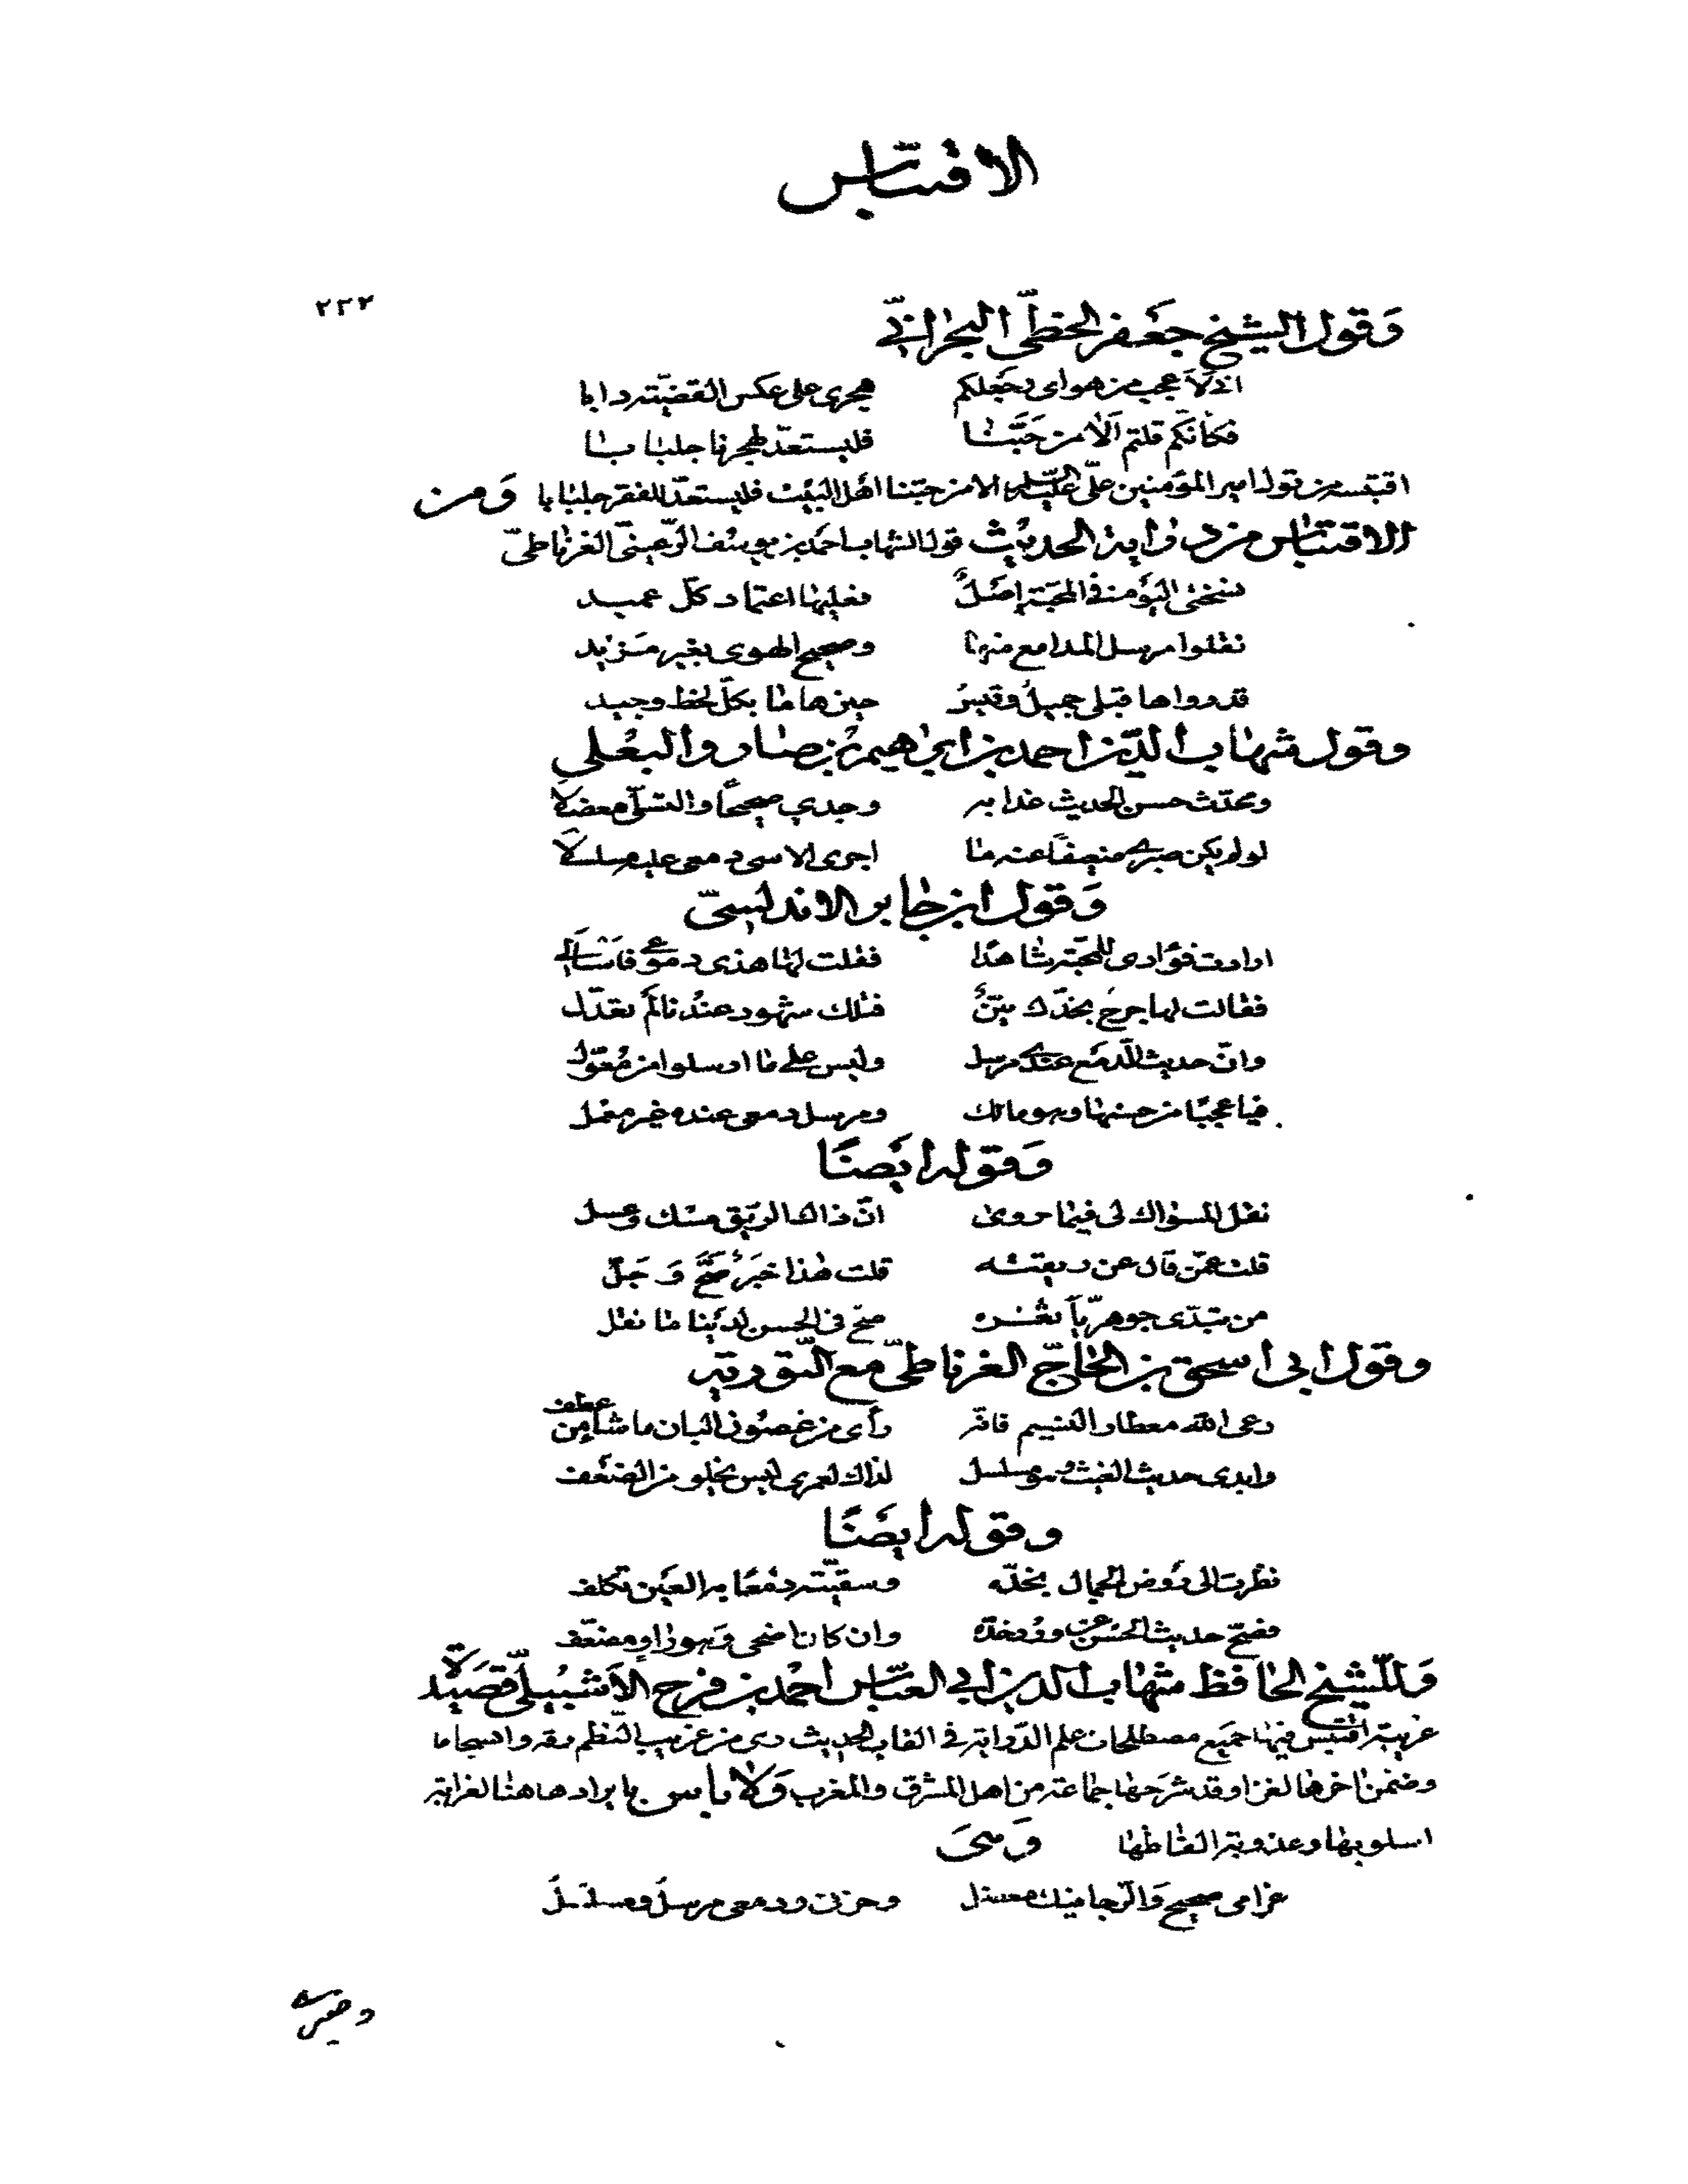 الاقتباس
٢٣٢
وقول الشيخ جعفر الخطّى البحرانىّ
انّى لاعجب من هواى يجعلكم هجرى على عكس القضيّته دابا
فكانّكم قلتم الا من حبّنا فليستعدّ لهجرنا جلبابا
اقتبسه من قول امير المؤمنين علىّ عليه السلم الا من حبّنا اهل البيت فليستعدّ للفقر جلبابا ومن
الاقتباس من دراية الحديث قول الشهاب احمد بن يوسف الرّعينىّ الغرناطىّ
فى المحبّة اصل فعليها اعتماد كلّ عميد
نقلوا مرسل المدامع منها وصحيح الهوى بغير مزيد
قد رواها قبلى جميل وقيس حين هاما بكلّ لحظ وجيد
وقول شهاب الدّين احمد بن ابرهيم بن صارو البعلى
ومحدّث حسن الحديث غدا به وجدى صحيحًا والتسلّى معضلا
لو لم يكن صبرى ضعيفًا عنه ما اجرى الاسى دمعى عليه مسلسلا
وقول ابن جابر الاندلسىّ
ارادت فؤادى للمحبّة شاهدًا فقلت لها هذى دموعى فاسالى
فقالت لها جرح بخدّك بيّنٌ فتلك شهود عندنا لم تعدّل
وانّ حديث الدّمع عندى مرسل وليس على ما ارسلوا من معوّل
فيا عجبًا من حسنها وهو مالك ومرسل دمعى عنده غير معمل
وقوله ايضًا
نقل المسواك لى فيما روى انّ ذاك الرّيق مسك وعسل
قلت عمّن قال عن ريقته قلت هذا خبر صحّ وجلّ
من تبدّى جوهريّا ثغره صحّ فى الحسن لدينا ما نقل
وقول ابى اسحق بن الحاجّ الغرناطىّ مع التّورية
رعى الله معطار النّسيم فانّه رأى من غصون البان ما شا من عطف
وابدى حديث الغيث وهو مسلسل لذاك لعمرى ليس يخلو من الضعف
وقوله ايضًا
نظرت الى روض الجمال بخدّه وسقّيته دمعًا به العين تكلف
فصحّ حديث الحسن عن ورد خدّه وان كان اضحى وهو راوٍ مضعّف
وللشيخ الحافظ شهاب الدين ابى العبّاس احمد بن فرح الاشبيلىّ قصيدة
غريبة اقتبس فيها جميع مصطلحات علم الدّراية فى القاب الحديث وهى من غريب النّظم رقه وانسجاما
وضمن اخرها لغزا وقد شرحها جماعة من اهل المشرق والمغرب ولا باس بايرادها هنا لغرابة
اسلوبها وعذوبة الفاظها وهى
غرامى صحيح والرّجا فيك معضل وحزنى ودمعى مرسل ومسلسل
وصبرى